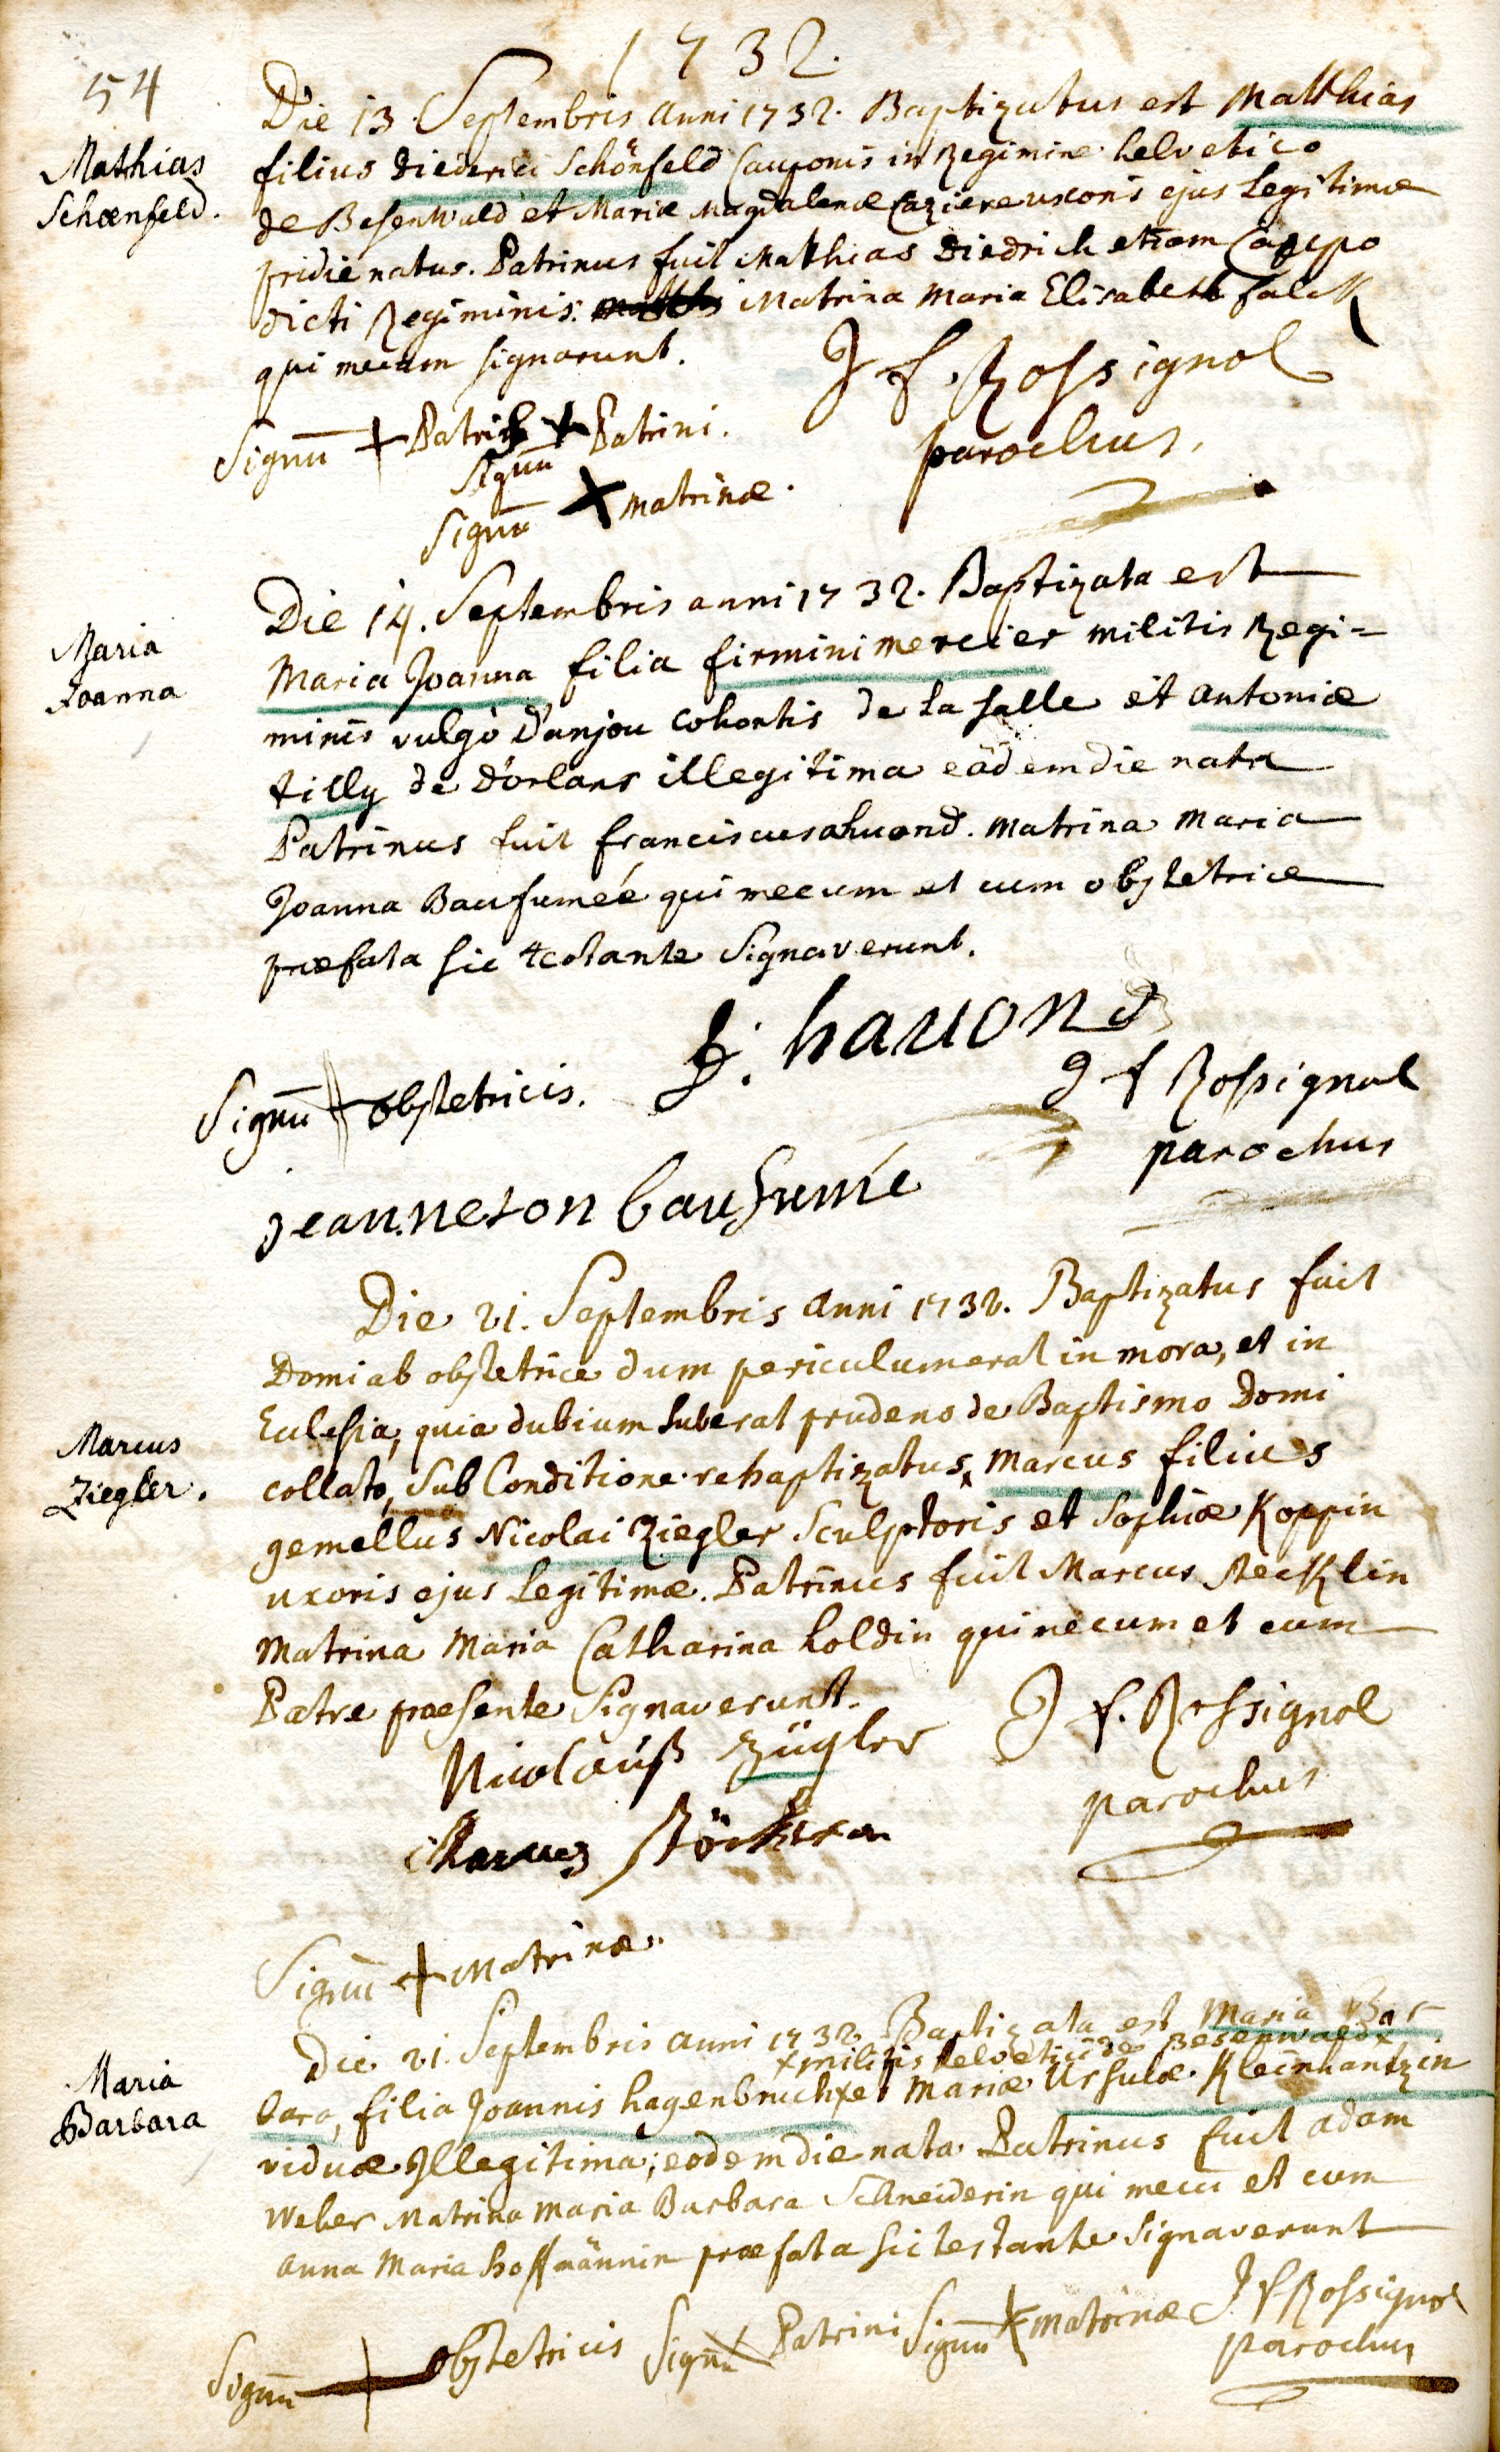 1732.
54
Die 13. Septembris anni 1732. Baptizatus est Matthias
Mathias
Schœnfeld.
filius diederici Schönfeld Cauponis in Regimine helvetico
de Besenwald et Mariæ Magdalenæ uxoris ejus legitimæ
pridie natus. Patrinus fuit Mathias diedrich etiam Caupo
dicti Regiminis. Matrina Maria Elisabeth falck
qui mecum signarunt.
J f. Rossignol
parochus.
Signū + Patris
Signū + Patrini.
Signū + Matrinæ.
Die 14. Septembris anni 1732. Baptizata est
Maria
Joanna
Maria Joanna filia firmini mercier militis Regi=
minis vulgò d'anjou Cohortis de la salle et antoniæ
tilly de d'orlans illegitima eâdem die nata
Patrinus fuit franciscus ahuond. matrina Maria
Joanna Baufumée qui mecum et cum obstetrice
præfata sic testante signaverunt.
f. hauond
J f Rossignol
parochus
Signū + obstetricis.
jeanneton baufumée
Die 21. Septembris anni 1732. Baptizatus fuit
Domi ab obstetrice dum periculum erat in mora, et in
Eclesia, quia dubium suberat prudens de Baptismo Domi
Marcus
Ziegler.
collato, sub Conditione rebaptizatus, Marcus filius
gemellus Nicolai Ziegler Sculptoris et Sophiæ Koppin
uxoris ejus legitimæ. Patrinus fuit Marcus Stecklin
Matrina Maria Catharina holdin qui mecum et cum
Patre præsente signaverunt.
J f. Rossignol
parochus
Nicolauß Zügler
Marcus
Signū + Matrinæ.
Die 21. Septembris anni 1732. Baptizata est Maria Bar-
x militis helvetici de Besenwald x
Maria
Barbara
bara, filia Joannis hagenbruch x et Mariæ Ursulæ Kleinhantzin
viduæ Illegitima, eodem die nata. Patrinus fuit adam
Weber Matrina Maria Barbara Schneiderin qui mecū et cum
anna Maria hoffmännin præfata sic testante signaverunt
J f Rossignol
parochus
Signū + obstetricis Signū Patrini Signū + matrinæ